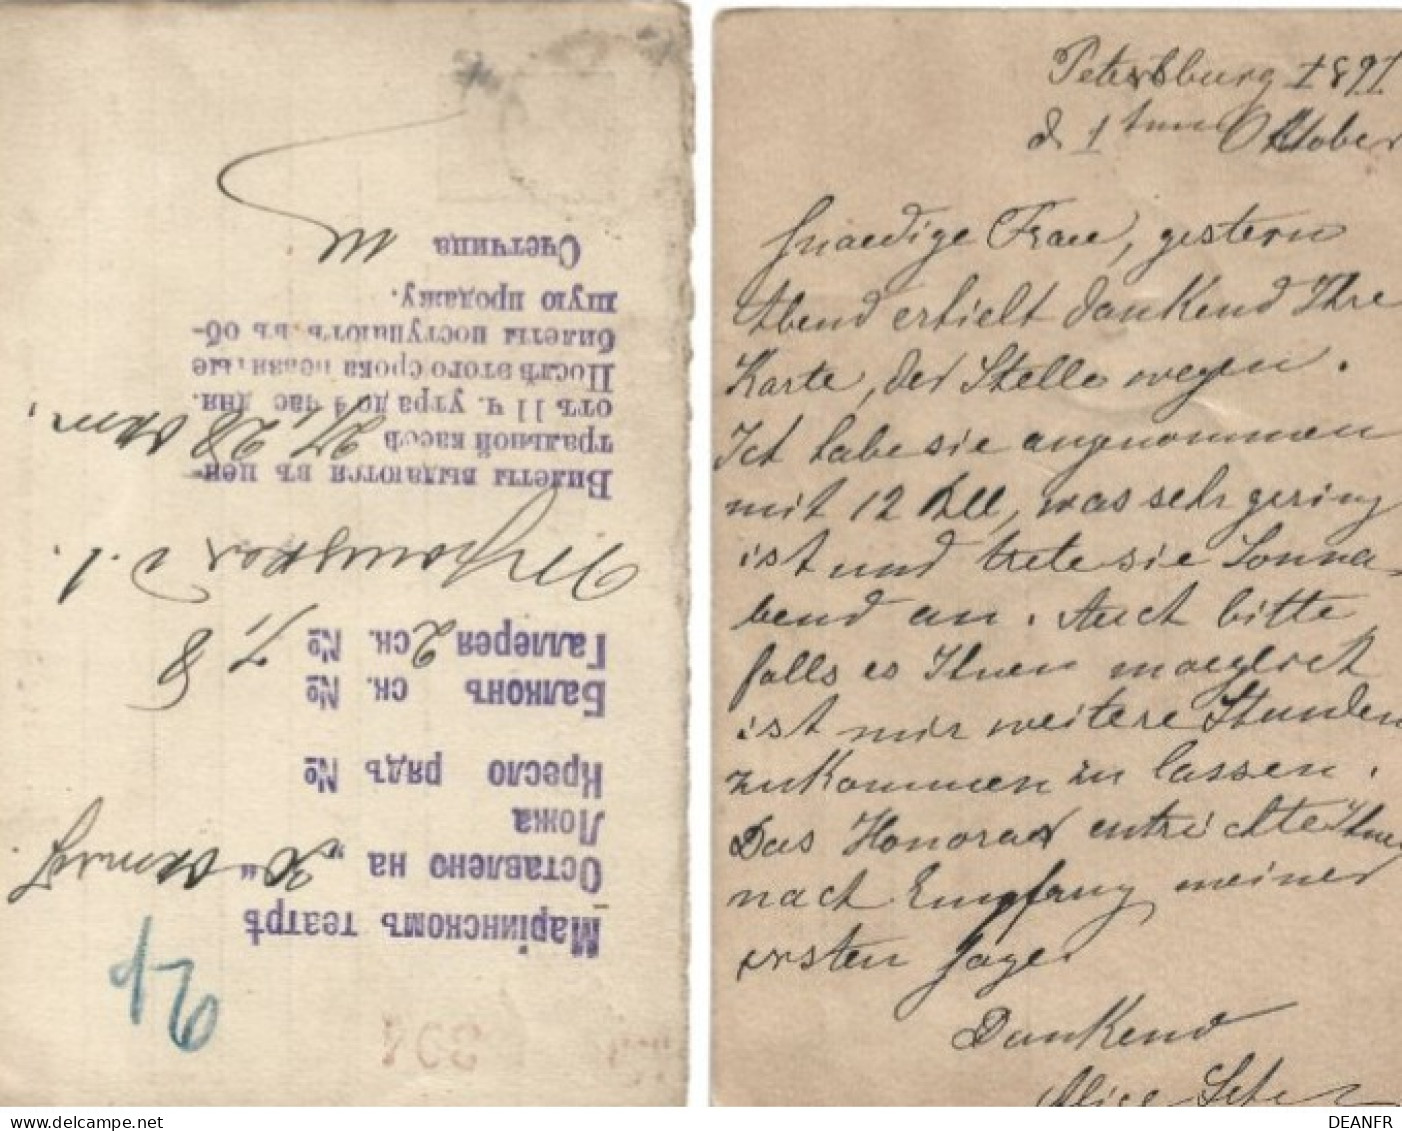 Марiинскомъ театрѣ
Оставлено на „30“
Ложа
Кресло рядъ №
Балконъ ск. №
Галлерея 2 ск. № 7, 8
Билеты выдаются въ цен-
тральной кассѣ 27, 28
отъ 11 ч. утра до 4 час. дня.
Послѣ этого срока невзятые
билеты поступаютъ въ об-
щую продажу.
Счетчица
324
Petersburg 1897
d 1ten Oktober
Gnaedige Frau, gestern
Abend erhielt dankend Ihre
Karte, der Stelle wegen.
Ich habe sie angenommen
mit 12 Rbl, was sehr gering
ist und trete sie Sonna-
bend an. Auch bitte
falls es Ihnen moeglich
ist mir weitere Stunden
zukommen zu lassen.
Das Honorar entrichte Ihnen
nach Empfang meiner
ersten Gage.
Dankend
Alice
DEANFR